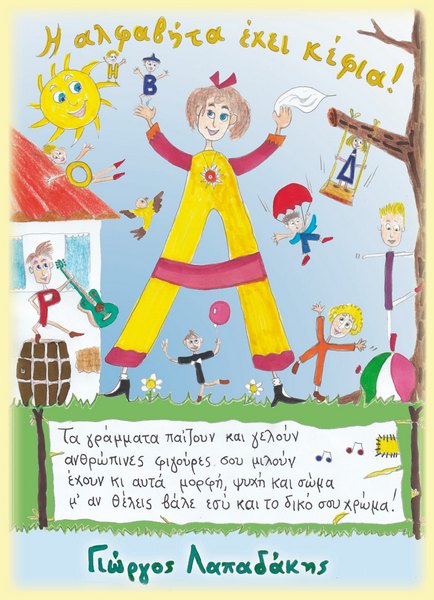 Η αλφαβήτα έχει κέφια!
Η
Β
Ο
Δ
Α
Ρ
Τ
Κ
Τα γράμματα παίζουν και γελούν
ανθρώπινες φιγούρες σου μιλούν
έχουν κι αυτά μορφή, ψυχή και σώμα
μ' αν θέλεις βάλε εσύ και το δικό σου χρώμα!
Γιώργος Λαπαδάκης